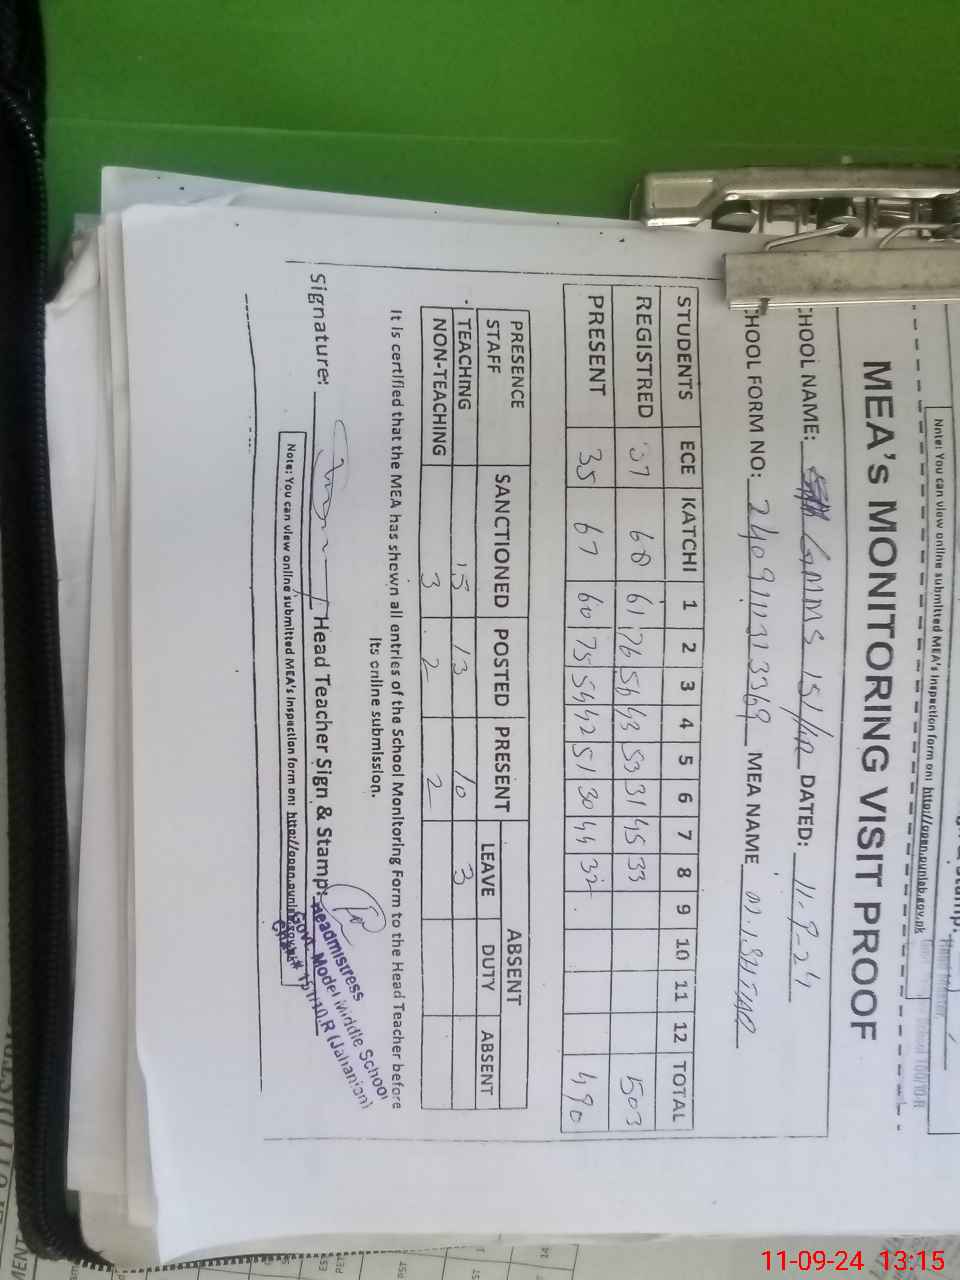 Note: You can view online submitted MEA's Inspection form on: http://open.punjab.gov.pk
MEA's MONITORING VISIT PROOF
CHOOL NAME: GMMS 151/10R DATED: 11-9-24
CHOOL FORM NO: MEA NAME M. ISHTIAQ
STUDENTS ECE KATCHI 1 2 3 4 5 6 7 8 9 10 11 12 TOTAL
REGISTRED 37 68 61 76 56 43 53 31 45 33 503
PRESENT 35 67 60 75 54 42 51 30 44 32 490
PRESENCE STAFF SANCTIONED POSTED PRESENT ABSENT
LEAVE DUTY ABSENT
TEACHING 15 13 10 3
NON-TEACHING 3 2 2
It is certified that the MEA has shown all entries of the School Monitoring Form to the Head Teacher before
its online submission.
Signature: Head Teacher Sign & Stamp:
Headmistress
Govt. Model Middle School
Chak # 151/10.R (Jahanian)
Note: You can view online submitted MEA's Inspection form on: http://open.punjab.gov.pk
11-09-24 13:15